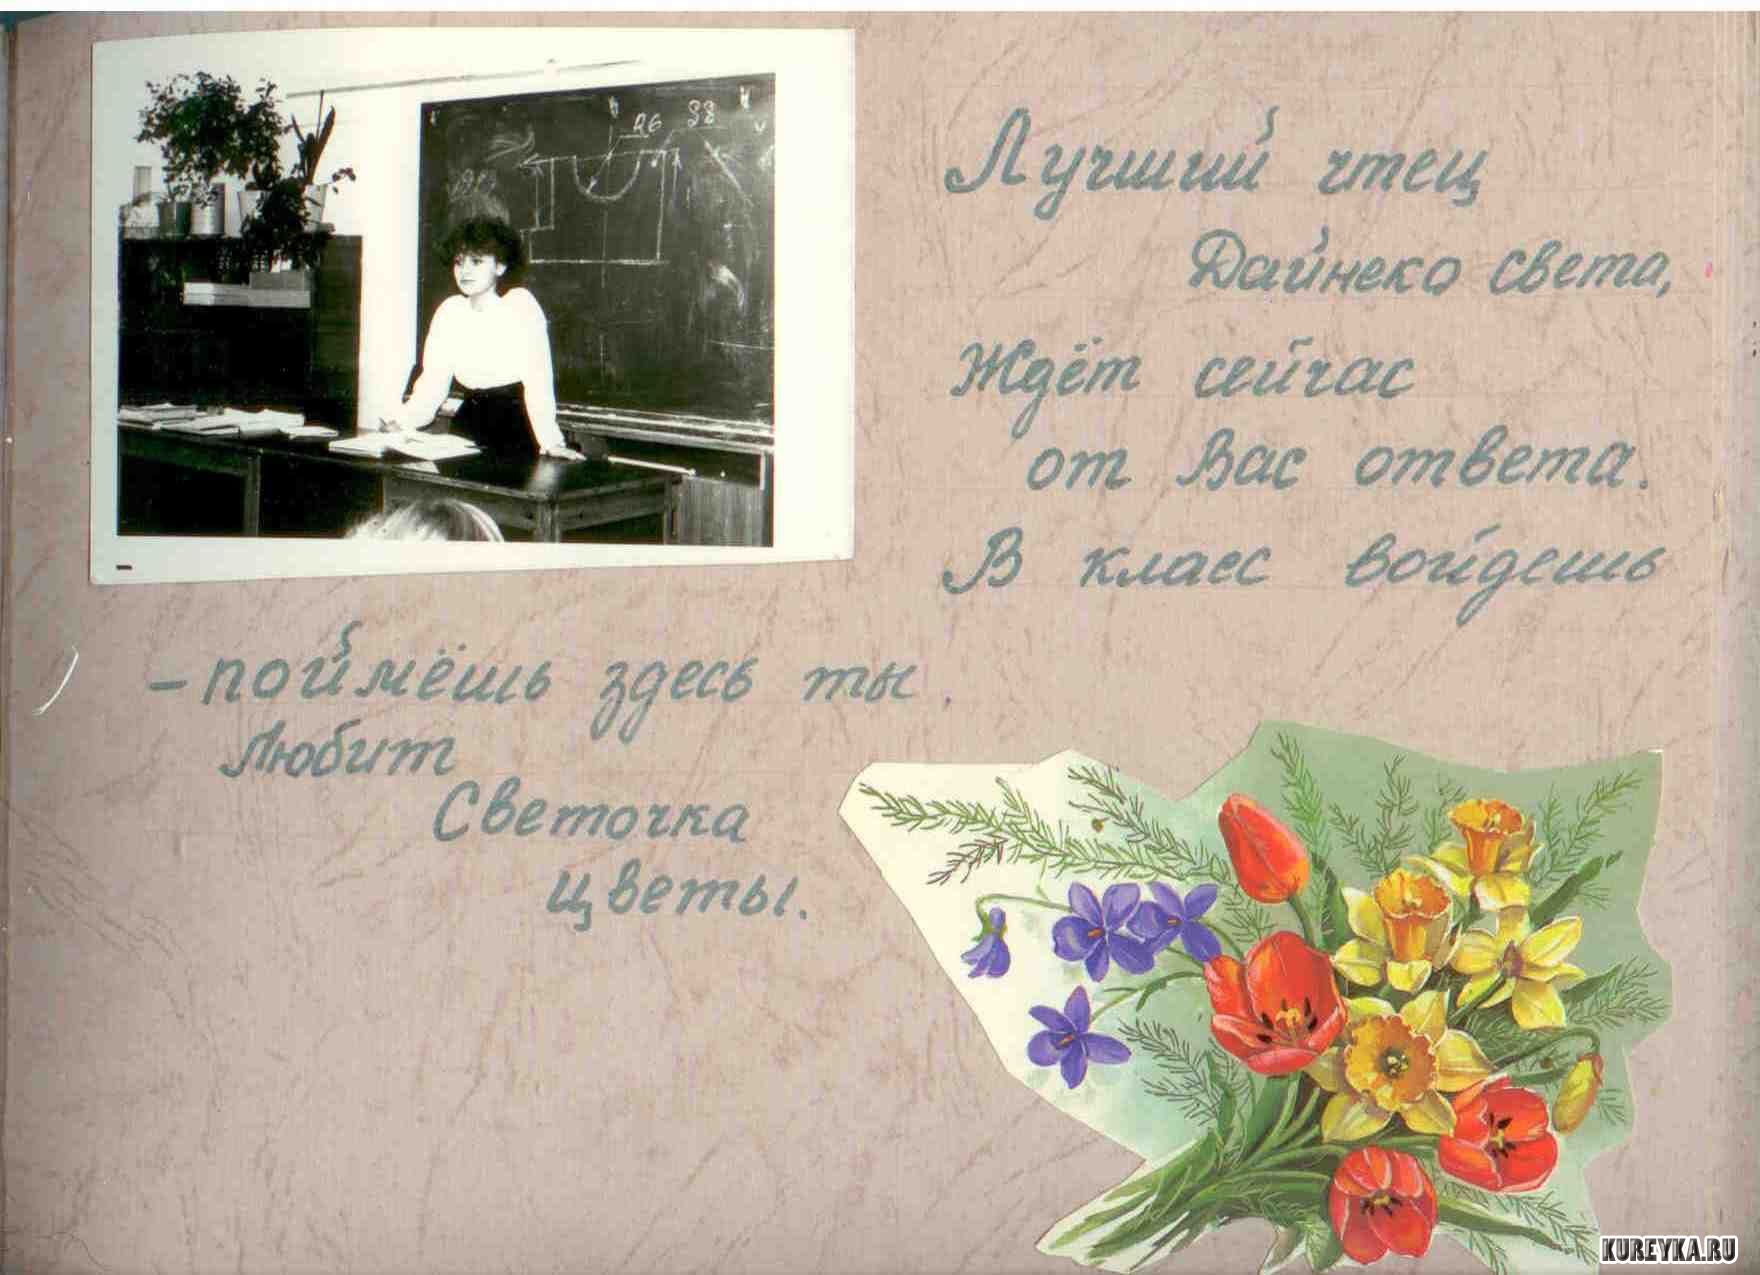 R6 38
Лучший чтец
Дайнеко Света,
Ждёт сейчас
от Вас ответа.
В класс войдешь
- поймёшь здесь ты.
Любит
Светочка
цветы.
KUREYKA.RU